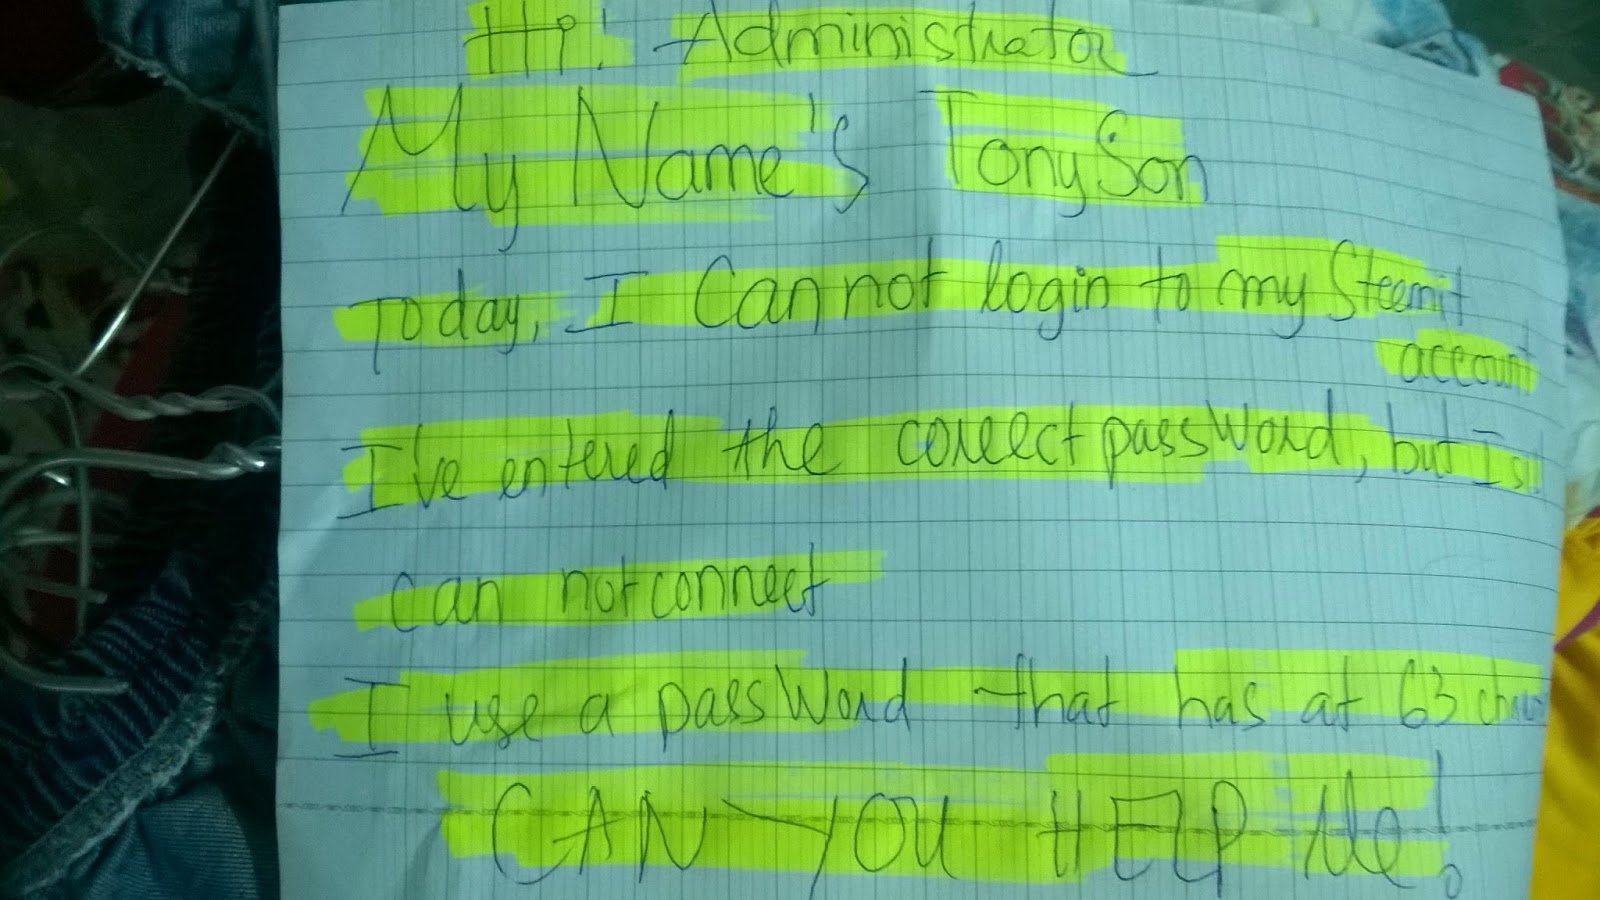 Hi! Administrator
My Name's TonySon
Today, I Can not login to my Steemit
account
I've entered the correct password, but I
can not connect
I use a password that has at 63
CAN YOU HELP Me!